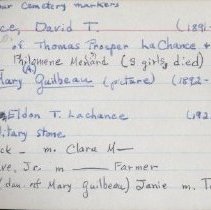 our Cemetery markers
ce, David T. (1891
of Thomas Prosper LaChance +
Philomene Menard (3 girls died)
Mary Guilbeau (picture) (1892-
Eldon T. Lachance (192
litary stone
ck - m. Clara M—
ve, Jr. m ——— Farmer
(dau. of Mary Guilbeau) Janie m. T